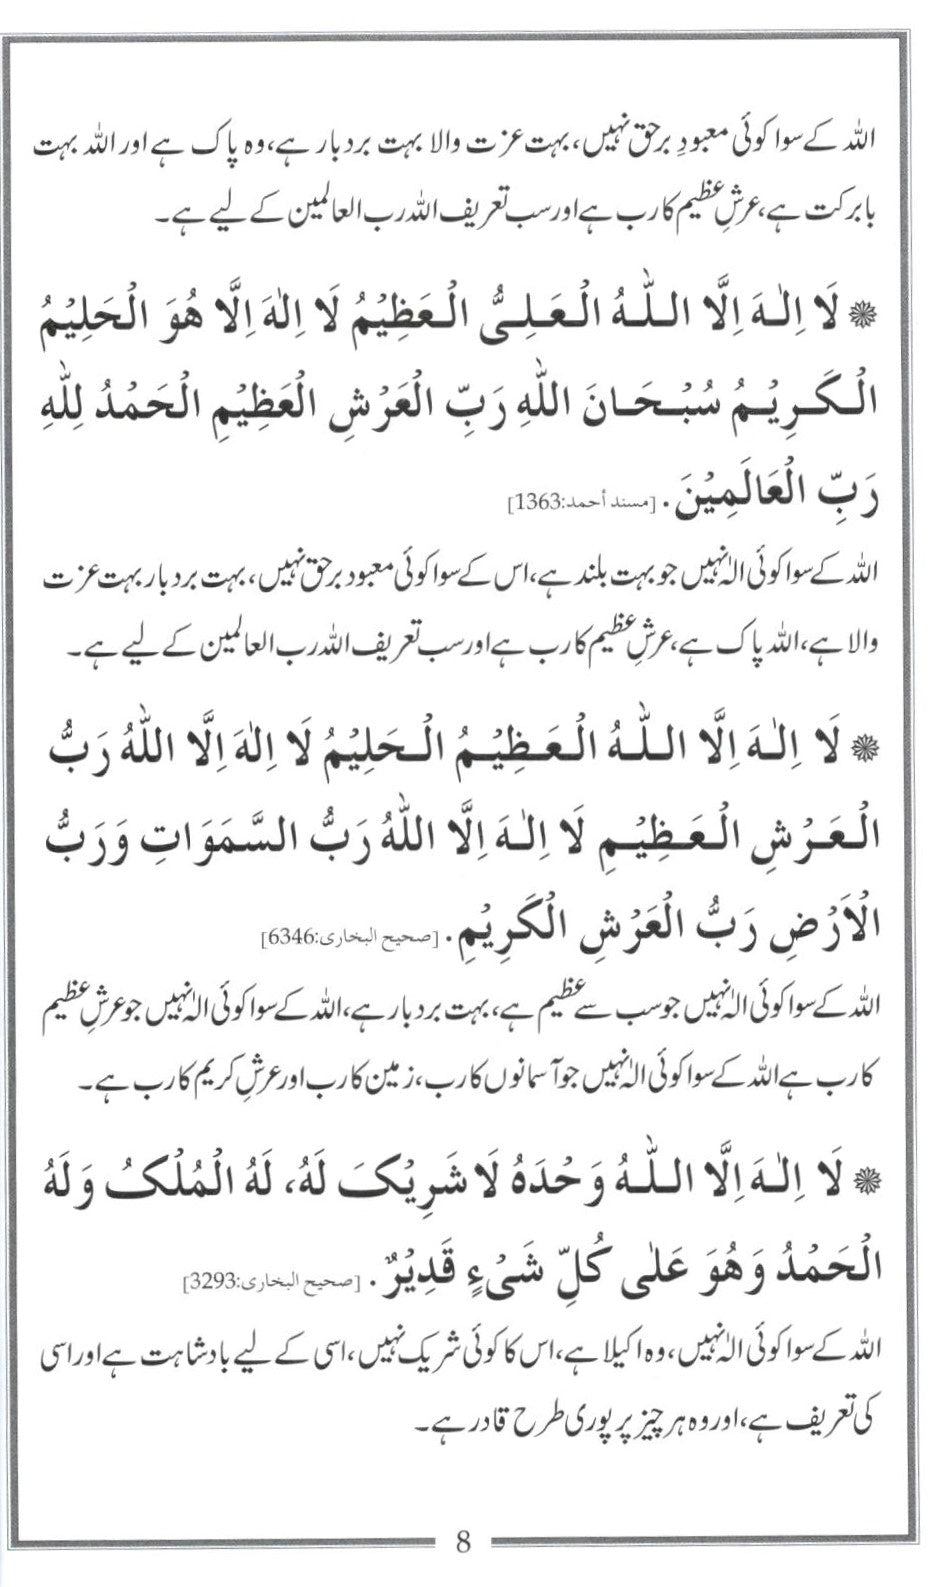 اللہ کے سوا کوئی معبودِ برحق نہیں، بہت عزت والا بہت بردبار ہے، وہ پاک ہے اور اللہ بہت
بابرکت ہے، عرشِ عظیم کا رب ہے اور سب تعریف اللہ رب العالمین کے لیے ہے۔
لَا اِلٰـہَ اِلَّا الـلّٰـہُ الْـعَـلِـیُّ الْـعَظِیْمُ لَا اِلٰہَ اِلَّا ھُوَ الْحَلِیْمُ
الْـکَـرِیْـمُ سُبْـحَـانَ اللّٰہِ رَبِّ الْعَرْشِ الْعَظِیْمِ الْحَمْدُ لِلّٰہِ
رَبِّ الْعَالَمِیْنَ. [مسند أحمد:1363]
اللہ کے سوا کوئی الٰہ نہیں جو بہت بلند ہے، اس کے سوا کوئی معبود برحق نہیں، بہت بردبار بہت عزت
والا ہے، اللہ پاک ہے، عرشِ عظیم کا رب ہے اور سب تعریف اللہ رب العالمین کے لیے ہے۔
لَا اِلٰـہَ اِلَّا الـلّٰـہُ الْـعَـظِیْـمُ الْـحَلِیْمُ لَا اِلٰہَ اِلَّا اللّٰہُ رَبُّ
الْـعَـرْشِ الْـعَـظِیْـمِ لَا اِلٰـہَ اِلَّا اللّٰہُ رَبُّ السَّمَوَاتِ وَرَبُّ
الْاَرْضِ رَبُّ الْعَرْشِ الْکَرِیْمِ. [صحیح البخاری:6346]
اللہ کے سوا کوئی الٰہ نہیں جو سب سے عظیم ہے، بہت بردبار ہے، اللہ کے سوا کوئی الٰہ نہیں جو عرشِ عظیم
کا رب ہے اللہ کے سوا کوئی الٰہ نہیں جو آسمانوں کا رب، زمین کا رب اور عرشِ کریم کا رب ہے۔
لَا اِلٰـہَ اِلَّا الـلّٰـہُ وَحْدَہُ لَا شَرِیْکَ لَہُ، لَہُ الْمُلْکُ وَلَہُ
الْحَمْدُ وَھُوَ عَلٰی کُلِّ شَیْءٍ قَدِیْرٌ. [صحیح البخاری:3293]
اللہ کے سوا کوئی الٰہ نہیں، وہ اکیلا ہے، اس کا کوئی شریک نہیں، اسی کے لیے بادشاہت ہے اور اسی
کی تعریف ہے، اور وہ ہر چیز پر پوری طرح قادر ہے۔
8